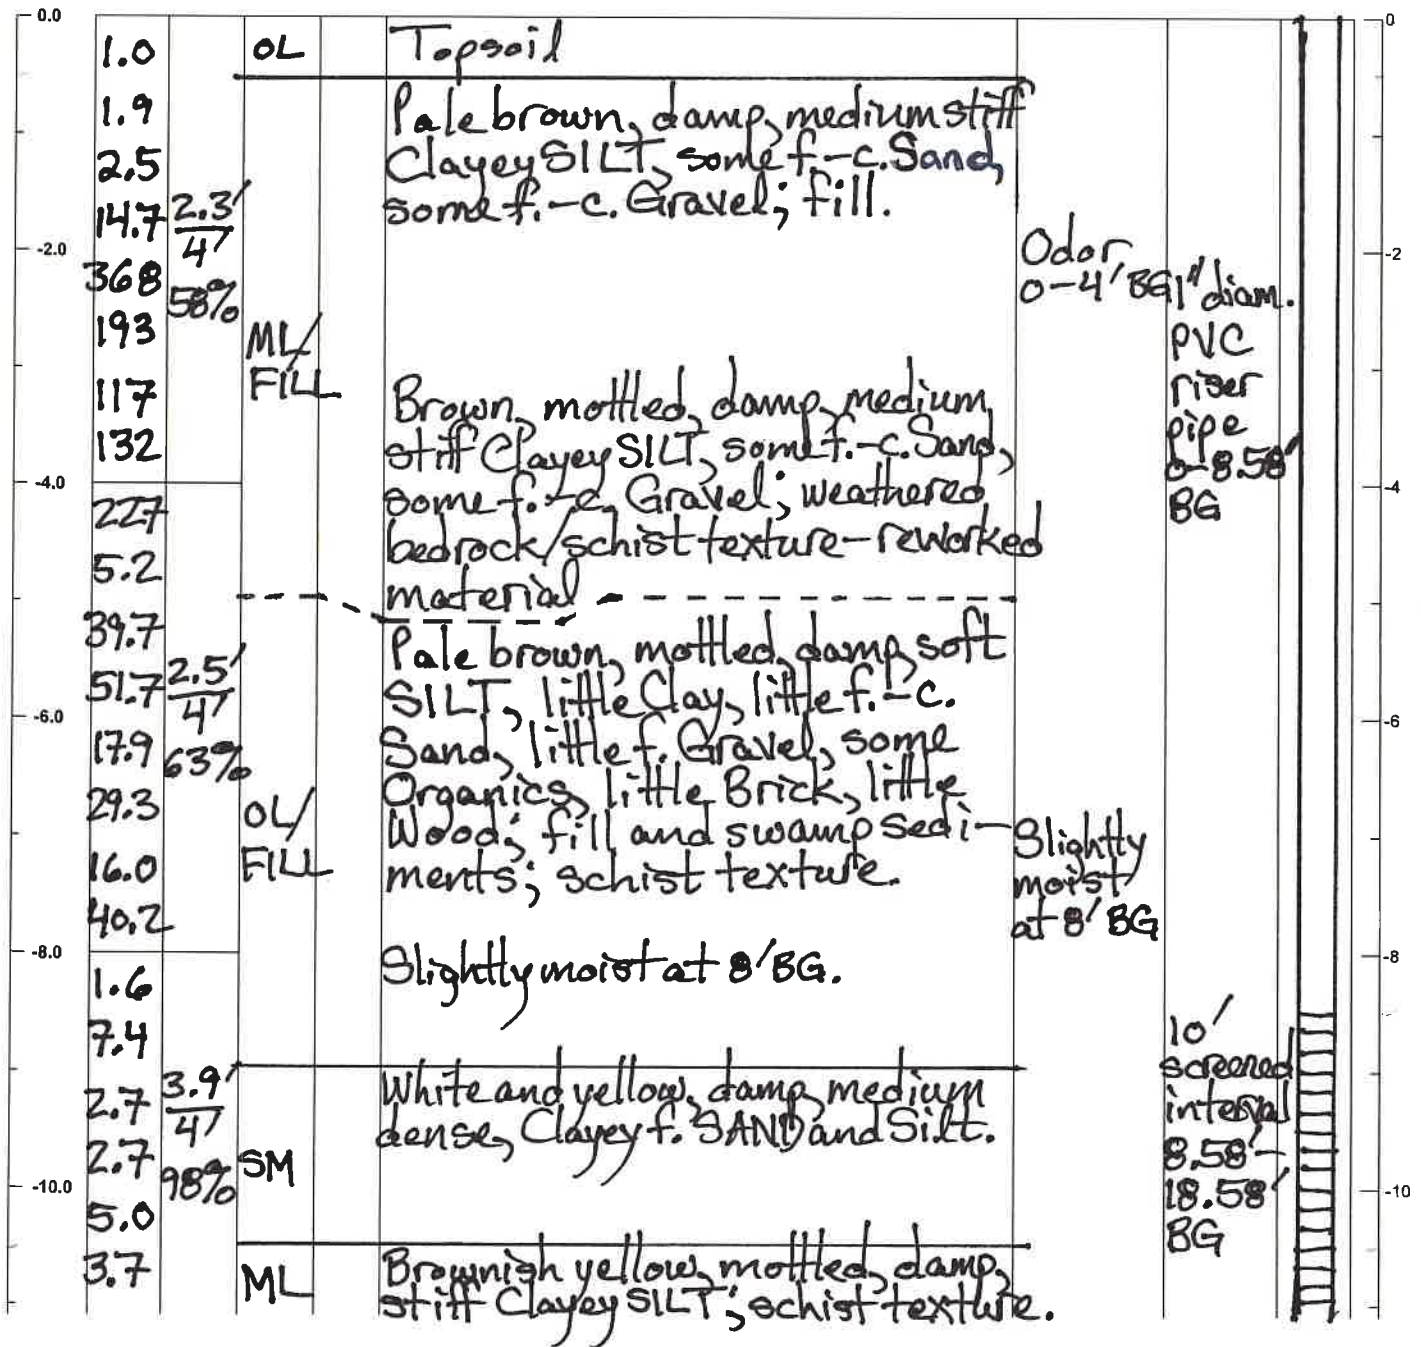 0.0
-2.0
-4.0
-6.0
-8.0
-10.0
1.0
1.9
2.5
14.7
368
193
117
132
227
5.2
39.7
51.7
17.9
29.3
16.0
40.2
1.6
7.4
2.7
2.7
5.0
3.7
2.3'
4'
58%
2.5'
4'
63%
3.9'
4'
98%
OL
ML/
FILL
OL/
FILL
SM
ML
Topsoil
Pale brown, damp, medium stiff
Clayey SILT, some f.-c. Sand,
some f.-c. Gravel; fill.
Brown, mottled, damp, medium
stiff Clayey SILT, some f.-c. Sand,
some f.-c. Gravel; weathered
bedrock/schist texture-reworked
material
Pale brown, mottled, damp, soft
SILT, little Clay, little f.-c.
Sand, little f. Gravel, some
Organics, little Brick, little
Wood; fill and swamp sedi-
ments; schist texture.
Slightly moist at 8' BG.
White and yellow, damp, medium
dense, Clayey f. SAND and Silt.
Brownish yellow, mottled, damp,
stiff Clayey SILT; schist texture.
Odor
0-4' BG
Slightly
moist
at 8' BG
1" diam.
PVC
riser
pipe
0-8.58'
BG
10'
screened
interval
8.58'-
18.58'
BG
0
-2
-4
-6
-8
-10